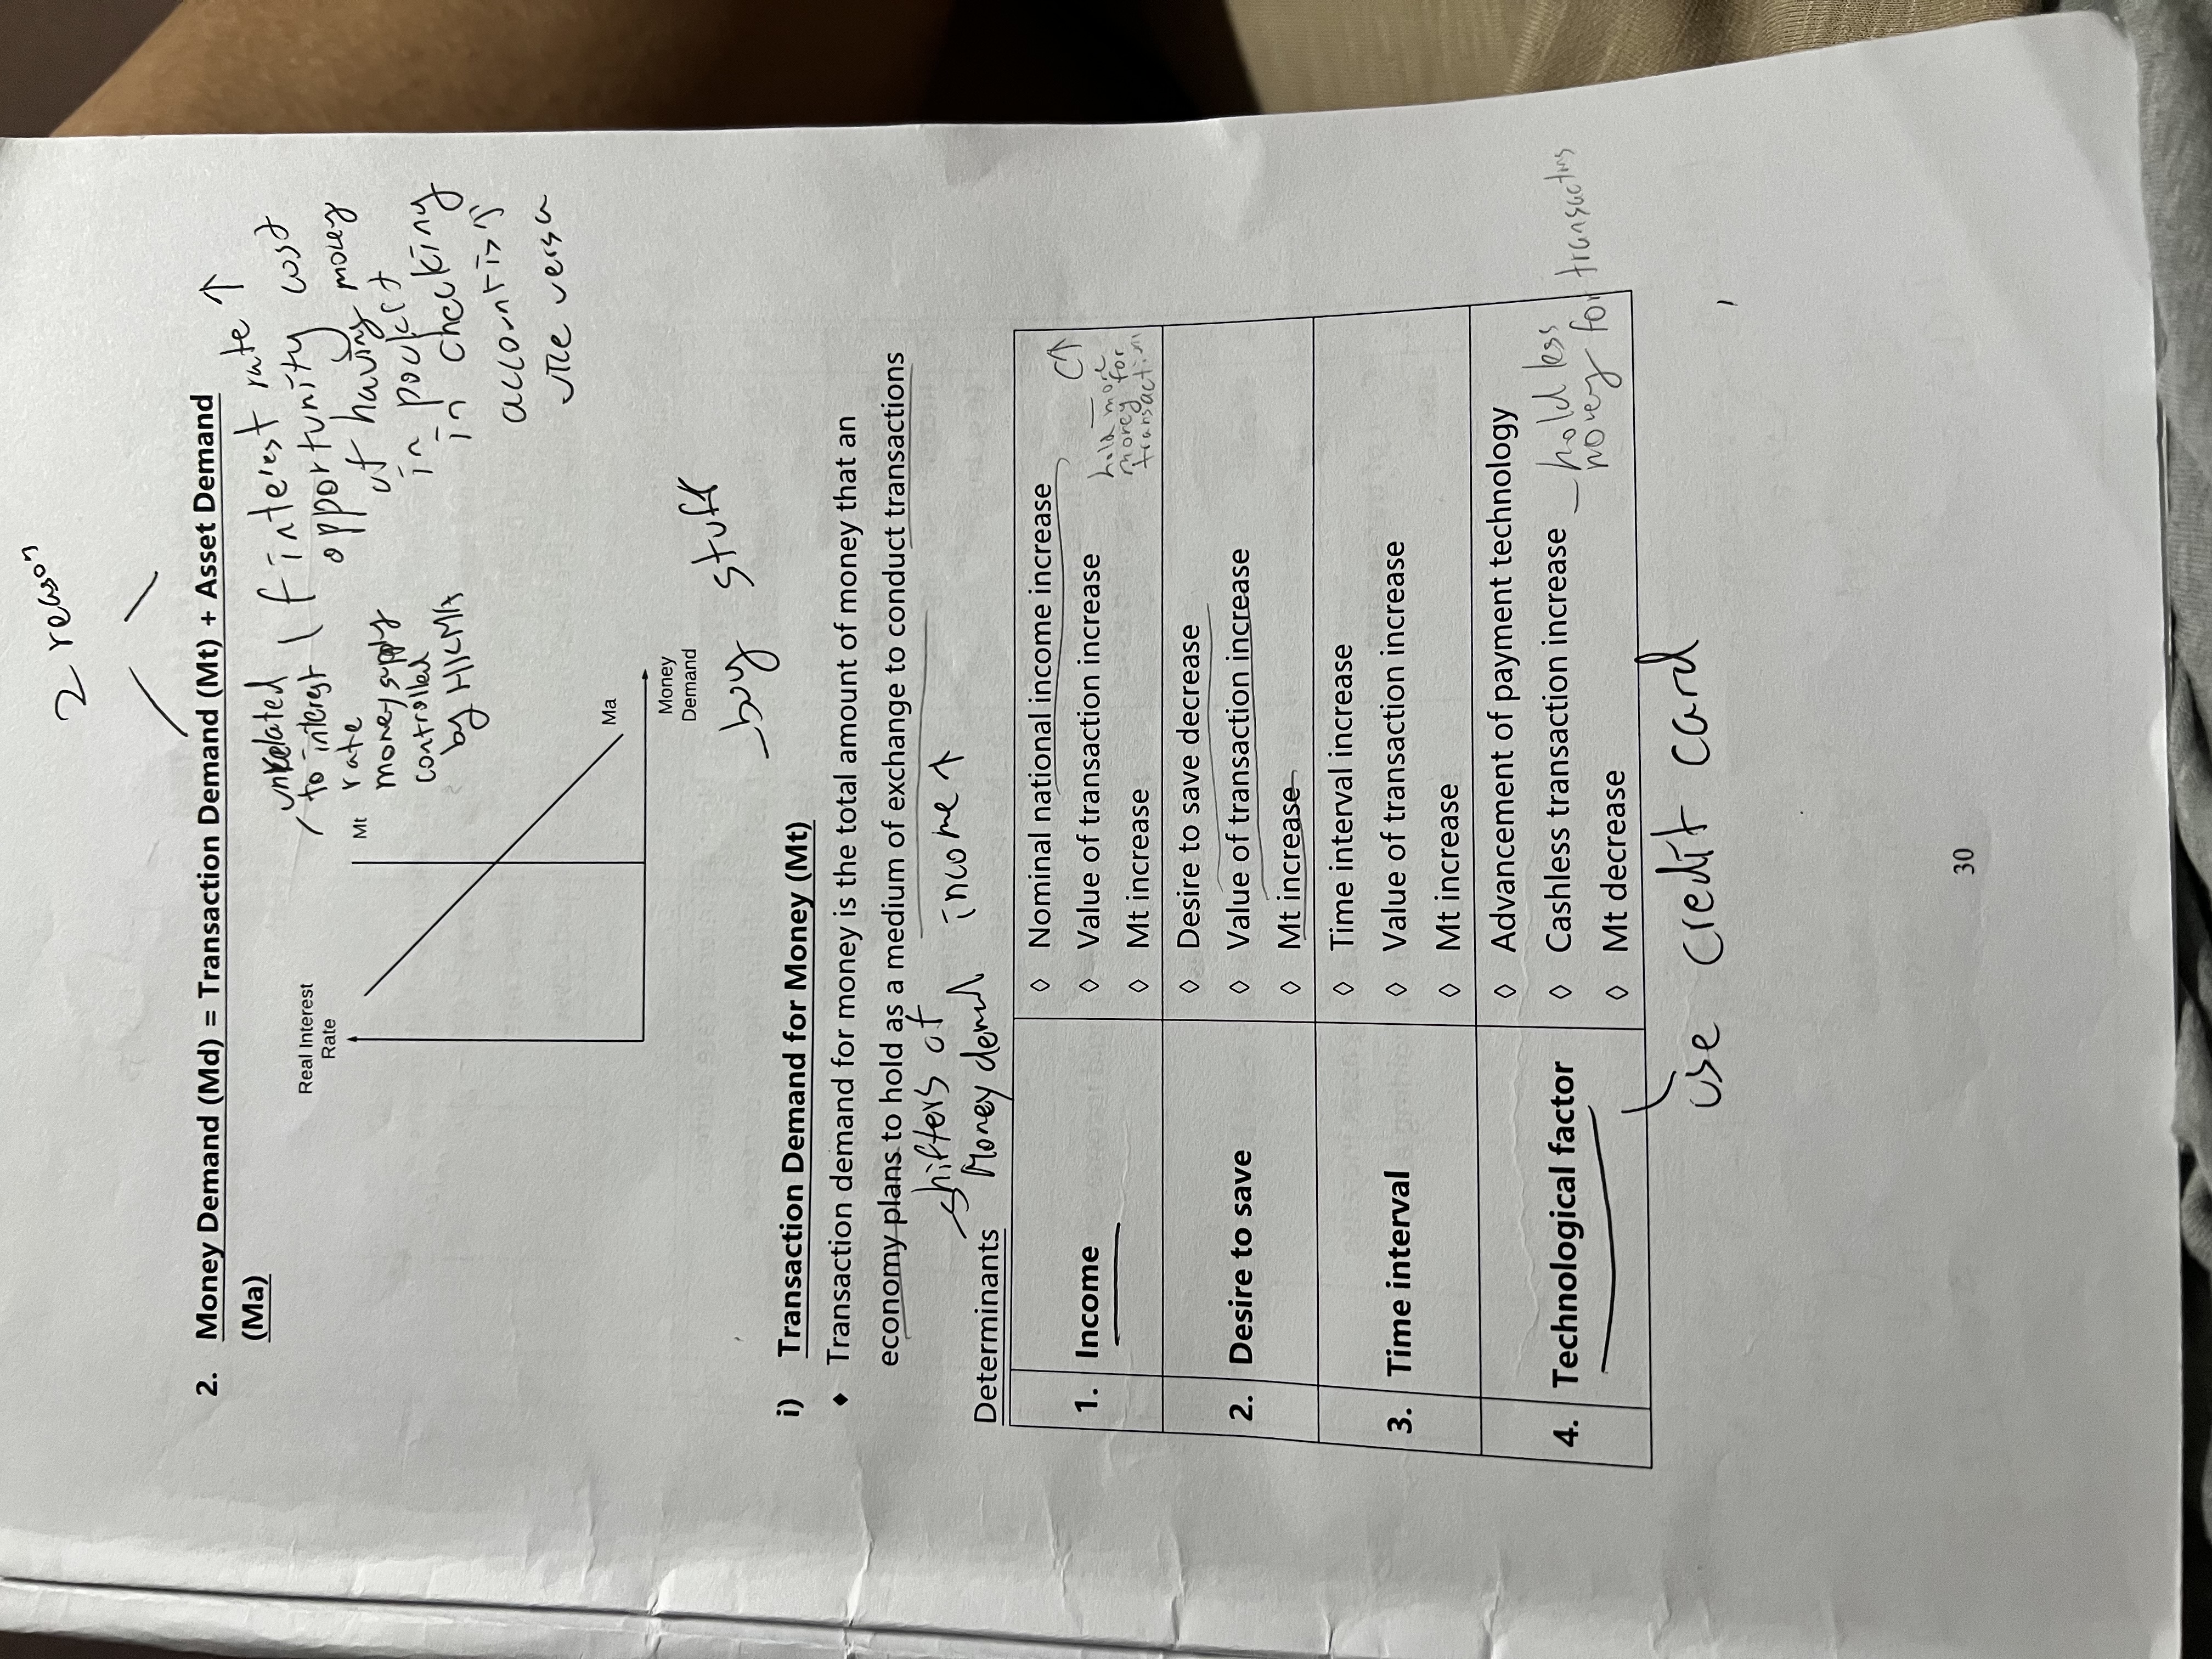 2 reason
2. Money Demand (Md) = Transaction Demand (Mt) + Asset Demand
(Ma)
If interest rate ↑
opportunity cost
of having money
in pocket
in checking
account is ↑
vice versa
unrelated
to interest
rate
money supply
controlled
by HKMA
Real Interest
Rate
Mt
Ma
Money
Demand
buy stuff
i) Transaction Demand for Money (Mt)
◆ Transaction demand for money is the total amount of money that an
economy plans to hold as a medium of exchange to conduct transactions
shifters of
Money demand income ↑
Determinants
1. Income
◊ Nominal national income increase
◊ Value of transaction increase
◊ Mt increase
C↑
hold more
money for
transaction
2. Desire to save
◊ Desire to save decrease
◊ Value of transaction increase
◊ Mt increase
3. Time interval
◊ Time interval increase
◊ Value of transaction increase
◊ Mt increase
4. Technological factor
◊ Advancement of payment technology
◊ Cashless transaction increase
◊ Mt decrease
hold less
money for transactions
use credit card
30